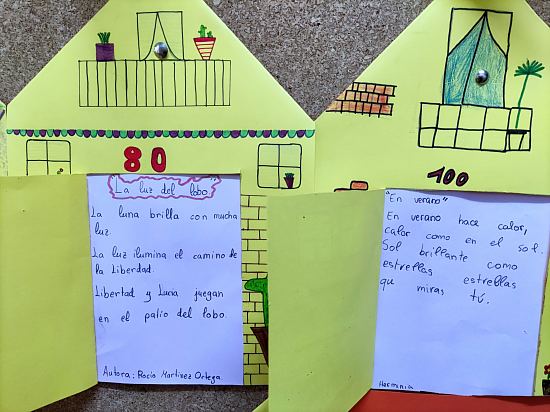 80
"La luz del lobo"
La luna brilla con mucha
luz.
La luz ilumina el camino de
la Liberdad.
Libertad y Lucía juegan
en el patio del lobo.
Autora: Rocío Martínez Ortega
100
"En verano"
En verano hace calor,
calor como en el sol.
Sol brillante como
estrellas estrellas
que miras tú.
Harmonia